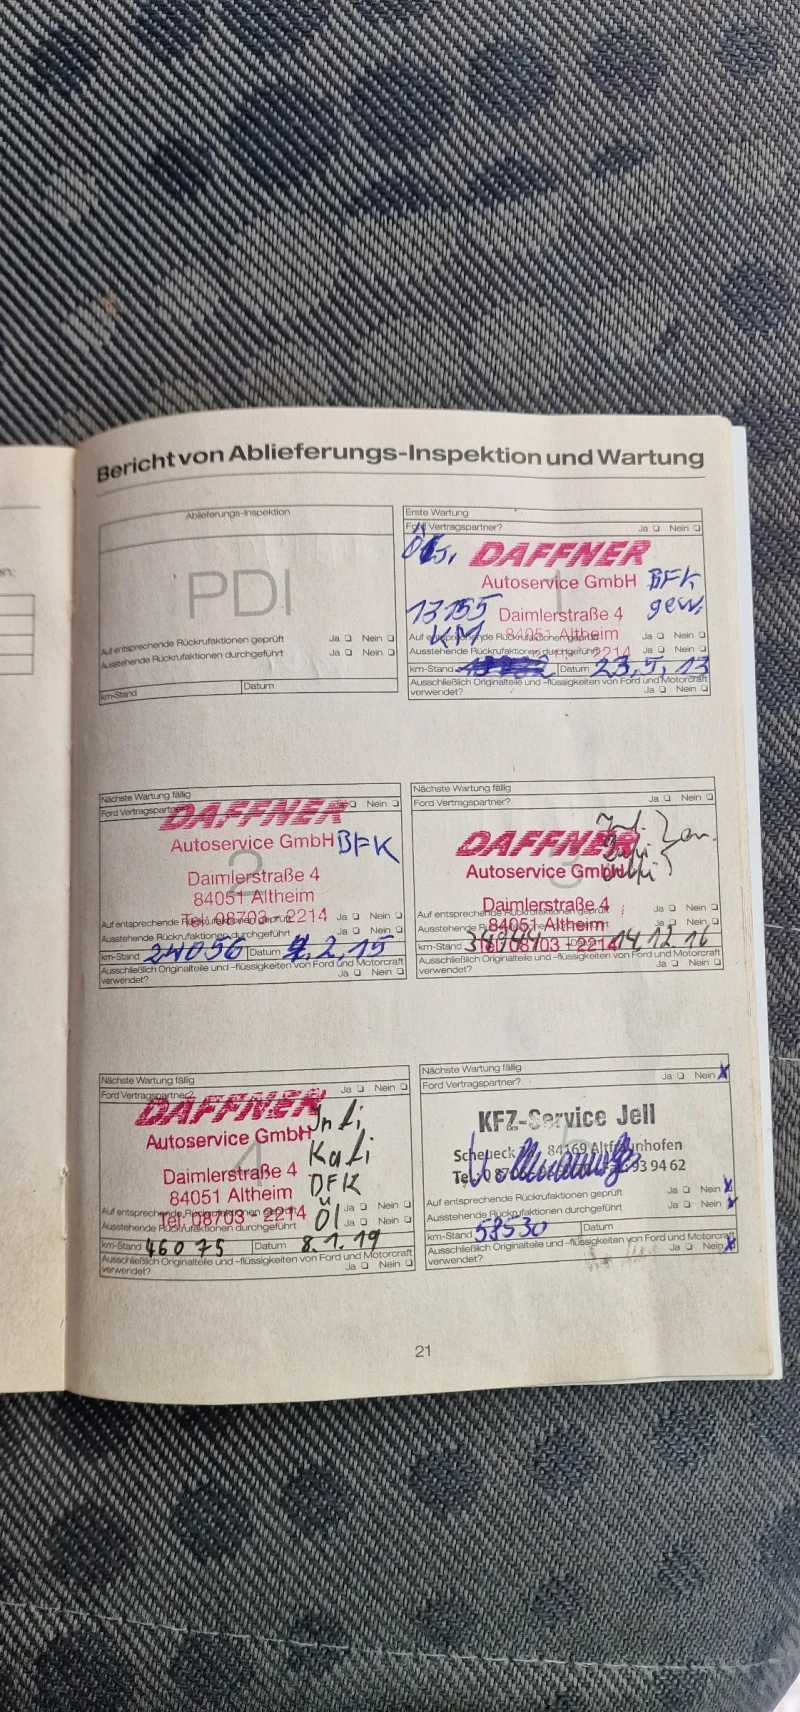 en:
Bericht von Ablieferungs-Inspektion und Wartung
Ablieferungs-Inspektion
PDI
Auf entsprechende Rückrufaktionen geprüft Ja Nein
Ausstehende Rückrufaktionen durchgeführt Ja Nein
km-Stand Datum
Erste Wartung
Ford Vertragspartner? Ja Nein
DAFFNER
Autoservice GmbH BFK
gew.
13155 Daimlerstraße 4
KM 84051 Altheim
Auf entsprechende Rückrufaktionen geprüft Ja Nein
Ausstehende Rückrufaktionen durchgeführt 2214 Ja Nein
km-Stand Datum 23.5.13
Ausschließlich Originalteile und -flüssigkeiten von Ford und Motorcraft
verwendet? Ja Nein
Nächste Wartung fällig
Ford Vertragspartner? Ja Nein
DAFFNER
Autoservice GmbH BFK
2
Daimlerstraße 4
84051 Altheim
Tel. 08703 - 2214
Auf entsprechende Rückrufaktionen geprüft Ja Nein
Ausstehende Rückrufaktionen durchgeführt Ja Nein
km-Stand 24056 Datum 4.2.15
Ausschließlich Originalteile und -flüssigkeiten von Ford und Motorcraft
verwendet? Ja Nein
Nächste Wartung fällig
Ford Vertragspartner? Ja Nein
DAFFNER
Autoservice GmbH
3
Daimlerstraße 4
84051 Altheim
Tel. 08703 - 2214
Auf entsprechende Rückrufaktionen geprüft Ja Nein
Ausstehende Rückrufaktionen durchgeführt Ja Nein
km-Stand Datum 14.12.16
Ausschließlich Originalteile und -flüssigkeiten von Ford und Motorcraft
verwendet? Ja Nein
Nächste Wartung fällig
Ford Vertragspartner? Ja Nein
DAFFNER
Autoservice GmbH
4
Daimlerstraße 4
84051 Altheim
Tel. 08703 - 2214 Öl
Auf entsprechende Rückrufaktionen geprüft Ja Nein
Ausstehende Rückrufaktionen durchgeführt Ja Nein
km-Stand 46075 Datum 8.1.19
Ausschließlich Originalteile und -flüssigkeiten von Ford und Motorcraft
verwendet? Ja Nein
Nächste Wartung fällig
Ford Vertragspartner? Ja Nein X
KFZ-Service Jell
84169 Altfraunhofen
93 94 62
Auf entsprechende Rückrufaktionen geprüft Ja Nein X
Ausstehende Rückrufaktionen durchgeführt Ja Nein X
km-Stand 58530 Datum
Ausschließlich Originalteile und -flüssigkeiten von Ford und Motorcraft
verwendet? Ja Nein X
21